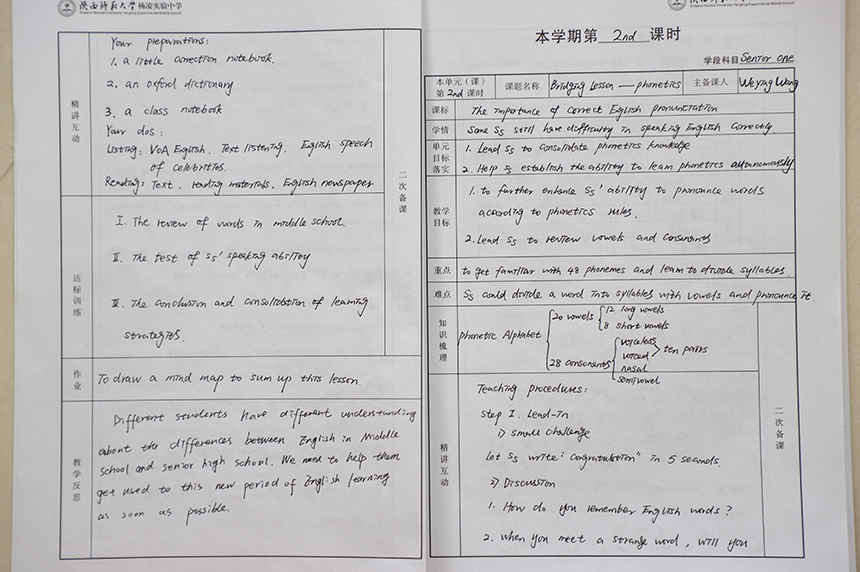 陕西师范大学杨凌实验中学
Shaanxi Normal University Yangling Experimental Middle School
精讲互动
Your preparations:
1. a little correction notebook.
2. an oxford dictionary
3. a class notebook
Your dos:
Listing: VOA English. Text listening. English speech
of celebrities.
Reading: Text. reading materials. English newspaper
二次备课
达标训练
I. The review of words in middle school.
II. The test of Ss' speaking ability
III. The conclusion and consolidation of learning
strategies.
作业
To draw a mind map to sum up this lesson.
教学反思
Different students have different understanding
about the differences between English in Middle
school and senior high school. We need to help them
get used to this new period of English learning
as soon as possible.
陕西师范大学杨凌实验中学
本学期第 2nd 课时
学段科目 Senior one
本单元(课)
第 2nd 课时
课题名称
Bridging Lesson — phonetics
主备课人
Weijing Wang
课标
The importance of correct English pronunciation
学情
Some Ss still have difficulty in speaking English correctly.
单元目标落实
1. Lead Ss to consolidate phonetics knowledge
2. Help Ss establish the ability to learn phonetics autonomously
教学目标
1. to further enhance Ss' ability to pronounce words
according to phonetics rules.
2. Lead Ss to review vowels and consonants
重点
to get familiar with 48 phonemes and learn to divide syllables.
难点
Ss could divide a word into syllables with vowels and pronounce it.
知识梳理
phonetic Alphabet
20 vowels
12 long vowels
8 short vowels
28 consonants
voiceless
voiced
ten pairs
nasal
semivowel
精讲互动
Teaching procedures:
Step I. Lead-in
1) small challenge
Let Ss write "congratulation" in 5 seconds.
2) Discussion
1. How do you remember English words?
2. When you meet a strange word, will you
二次备课